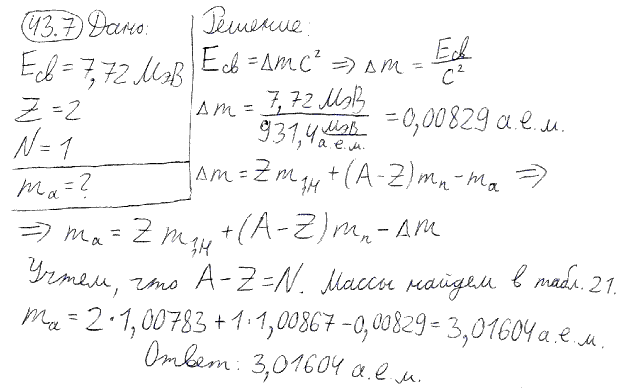 43.7 Дано:
Eсв = 7,72 МэВ
Z = 2
N = 1
mₐ = ?
Решение:
Eсв = Δmc² ⇒ Δm = Eсв/c²
Δm = 7,72 МэВ / 931,4 МэВ/а.е.м. = 0,00829 а.е.м.
Δm = Zm₁H + (A−Z)mₙ − mₐ ⇒
⇒ mₐ = Zm₁H + (A−Z)mₙ − Δm
Учтем, что A−Z=N. Массы найдем в табл. 21.
mₐ = 2·1,00783 + 1·1,00867 − 0,00829 = 3,01604 а.е.м.
Ответ: 3,01604 а.е.м.